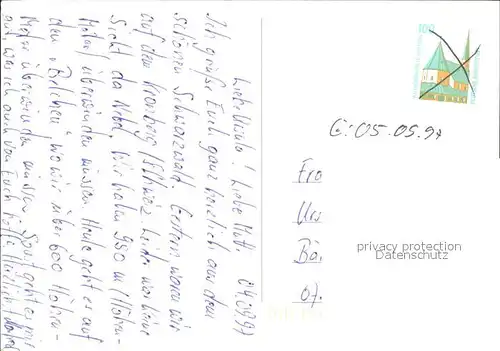 04.09.97
Liebe Ursula! Liebe Mutti
Ich grüße Euch ganz herzlich aus dem
schönen Schwarzwald. Gestern waren wir
auf dem (Schweiz leider war keine
Sicht, da Nebel. Wir haben 950 m (Höhen-
Meter) überwinden müssen. Heute geht es auf
den "Belchen" wo wir über 600 Höhen-
Meter überwinden müssen. Sonst geht es mir
gut, was ich auch von Euch hoffe.
100
E: 05.09.97
Fra
Urs
Ba.
07.
privacy protection
Datenschutz